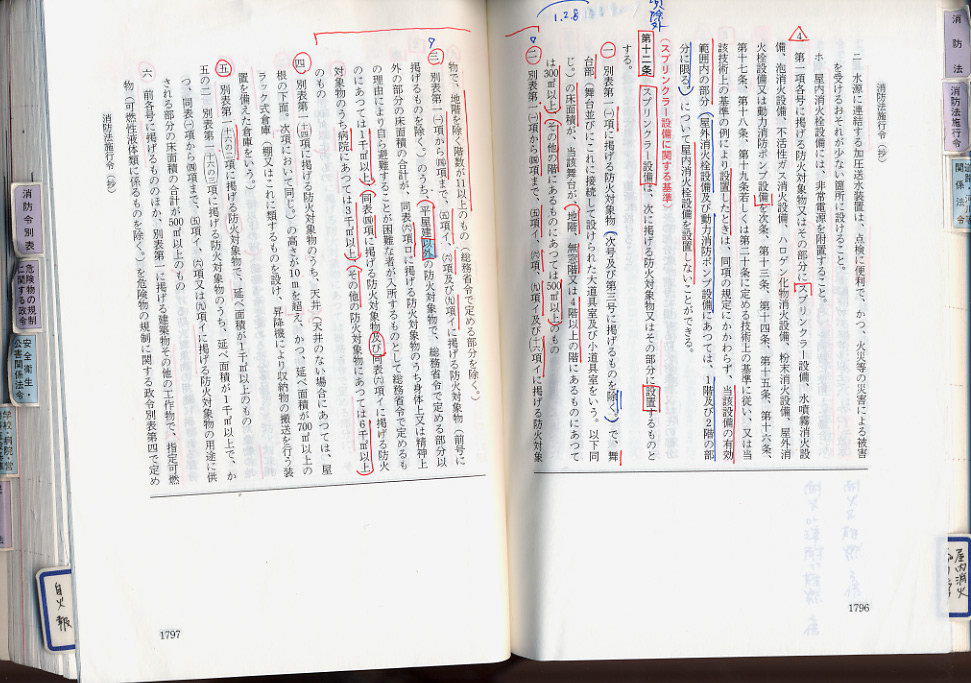 消防法施行令（抄）
二　水源に連結する加圧送水装置は、点検に便利で、かつ、火災等の災害による被害
を受けるおそれが少ない箇所に設けること。
ホ　屋内消火栓設備には、非常電源を附置すること。
4　第一項各号に掲げる防火対象物又はその部分にスプリンクラー設備、水噴霧消火設
備、泡消火設備、不活性ガス消火設備、ハロゲン化物消火設備、粉末消火設備、屋外消
火栓設備又は動力消防ポンプ設備を次条、第十三条、第十四条、第十五条、第十六条、
第十七条、第十八条、第十九条若しくは第二十条に定める技術上の基準に従い、又は当
該技術上の基準の例により設置したときは、同項の規定にかかわらず、当該設備の有効
範囲内の部分（屋外消火栓設備及び動力消防ポンプ設備にあつては、1階及び2階の部
分に限る。）について屋内消火栓設備を設置しないことができる。
（スプリンクラー設備に関する基準）
第十二条　スプリンクラー設備は、次に掲げる防火対象物又はその部分に設置するものと
する。
一　別表第一㈠項に掲げる防火対象物（次号及び第三号に掲げるものを除く。）で、舞
台部（舞台並びにこれに接続して設けられた大道具室及び小道具室をいう。以下同
じ。）の床面積が、当該舞台が、地階、無窓階又は4階以上の階にあるものにあつて
は300㎡以上、その他の階にあるものにあつては500㎡以上のもの
二　別表第一㈠項から㈣項まで、㈤項イ、㈥項、㈨項イ及び㈩六項イに掲げる防火対象
1796
1.2.8
屋内消火
消防法
消防法施行令
物で、地階を除く階数が11以上のもの（総務省令で定める部分を除く。）
三　別表第一㈠項から㈣項まで、㈤項イ、㈥項及び㈨項イに掲げる防火対象物（前号に
掲げるものを除く。）のうち、平屋建以外の防火対象物で、総務省令で定める部分以
外の部分の床面積の合計が、同表㈥項ロに掲げる防火対象物のうち身体上又は精神上
の理由により自ら避難することが困難な者が入所するものとして総務省令で定めるも
のにあつては1千㎡以上、同表㈣項に掲げる防火対象物及び同表㈥項イに掲げる防火
対象物のうち病院にあつては3千㎡以上、その他の防火対象物にあつては6千㎡以上
のもの
四　別表第一㈩四項に掲げる防火対象物のうち、天井（天井のない場合にあつては、屋
根の下面。次項において同じ。）の高さが10mを超え、かつ、延べ面積が700㎡以上の
ラック式倉庫（棚又はこれに類するものを設け、昇降機により収納物の搬送を行う装
置を備えた倉庫をいう。）
五　別表第一㈩六の二項に掲げる防火対象物で、延べ面積が1千㎡以上のもの
五の二　別表第一㈩六の三項に掲げる防火対象物のうち、延べ面積が1千㎡以上で、か
つ、同表㈠項から㈣項まで、㈤項イ、㈥項又は㈨項イに掲げる防火対象物の用途に供
される部分の床面積の合計が500㎡以上のもの
六　前各号に掲げるもののほか、別表第一に掲げる建築物その他の工作物で、指定可燃
物（可燃性液体類に係るものを除く。）を危険物の規制に関する政令別表第四で定め
消防法施行令（抄）
1797
消防令別表
危険物の規制に関する政令
安全衛生・公害関係法令
自火報